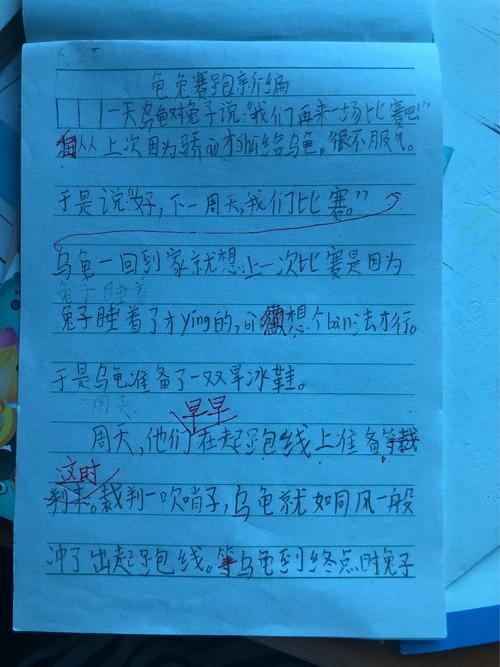 龟兔赛跑新编
一天乌龟对兔子说:"我们再来一场比赛吧!"
从上次因为骄ao才shū给乌龟,很不服气。
于是说"好,下一周天,我们比赛。"
乌龟一回到家就想:上一次比赛是因为
兔子睡着
兔子睡着了才yíng的,得想个bàn法才行。
于是乌龟准备了一双旱冰鞋。
周天
早早
周天,他们在起跑线上准备等裁
这时
判来。裁判一吹哨子,乌龟就如同风一般
冲了出起跑线。等乌龟到终点时兔子